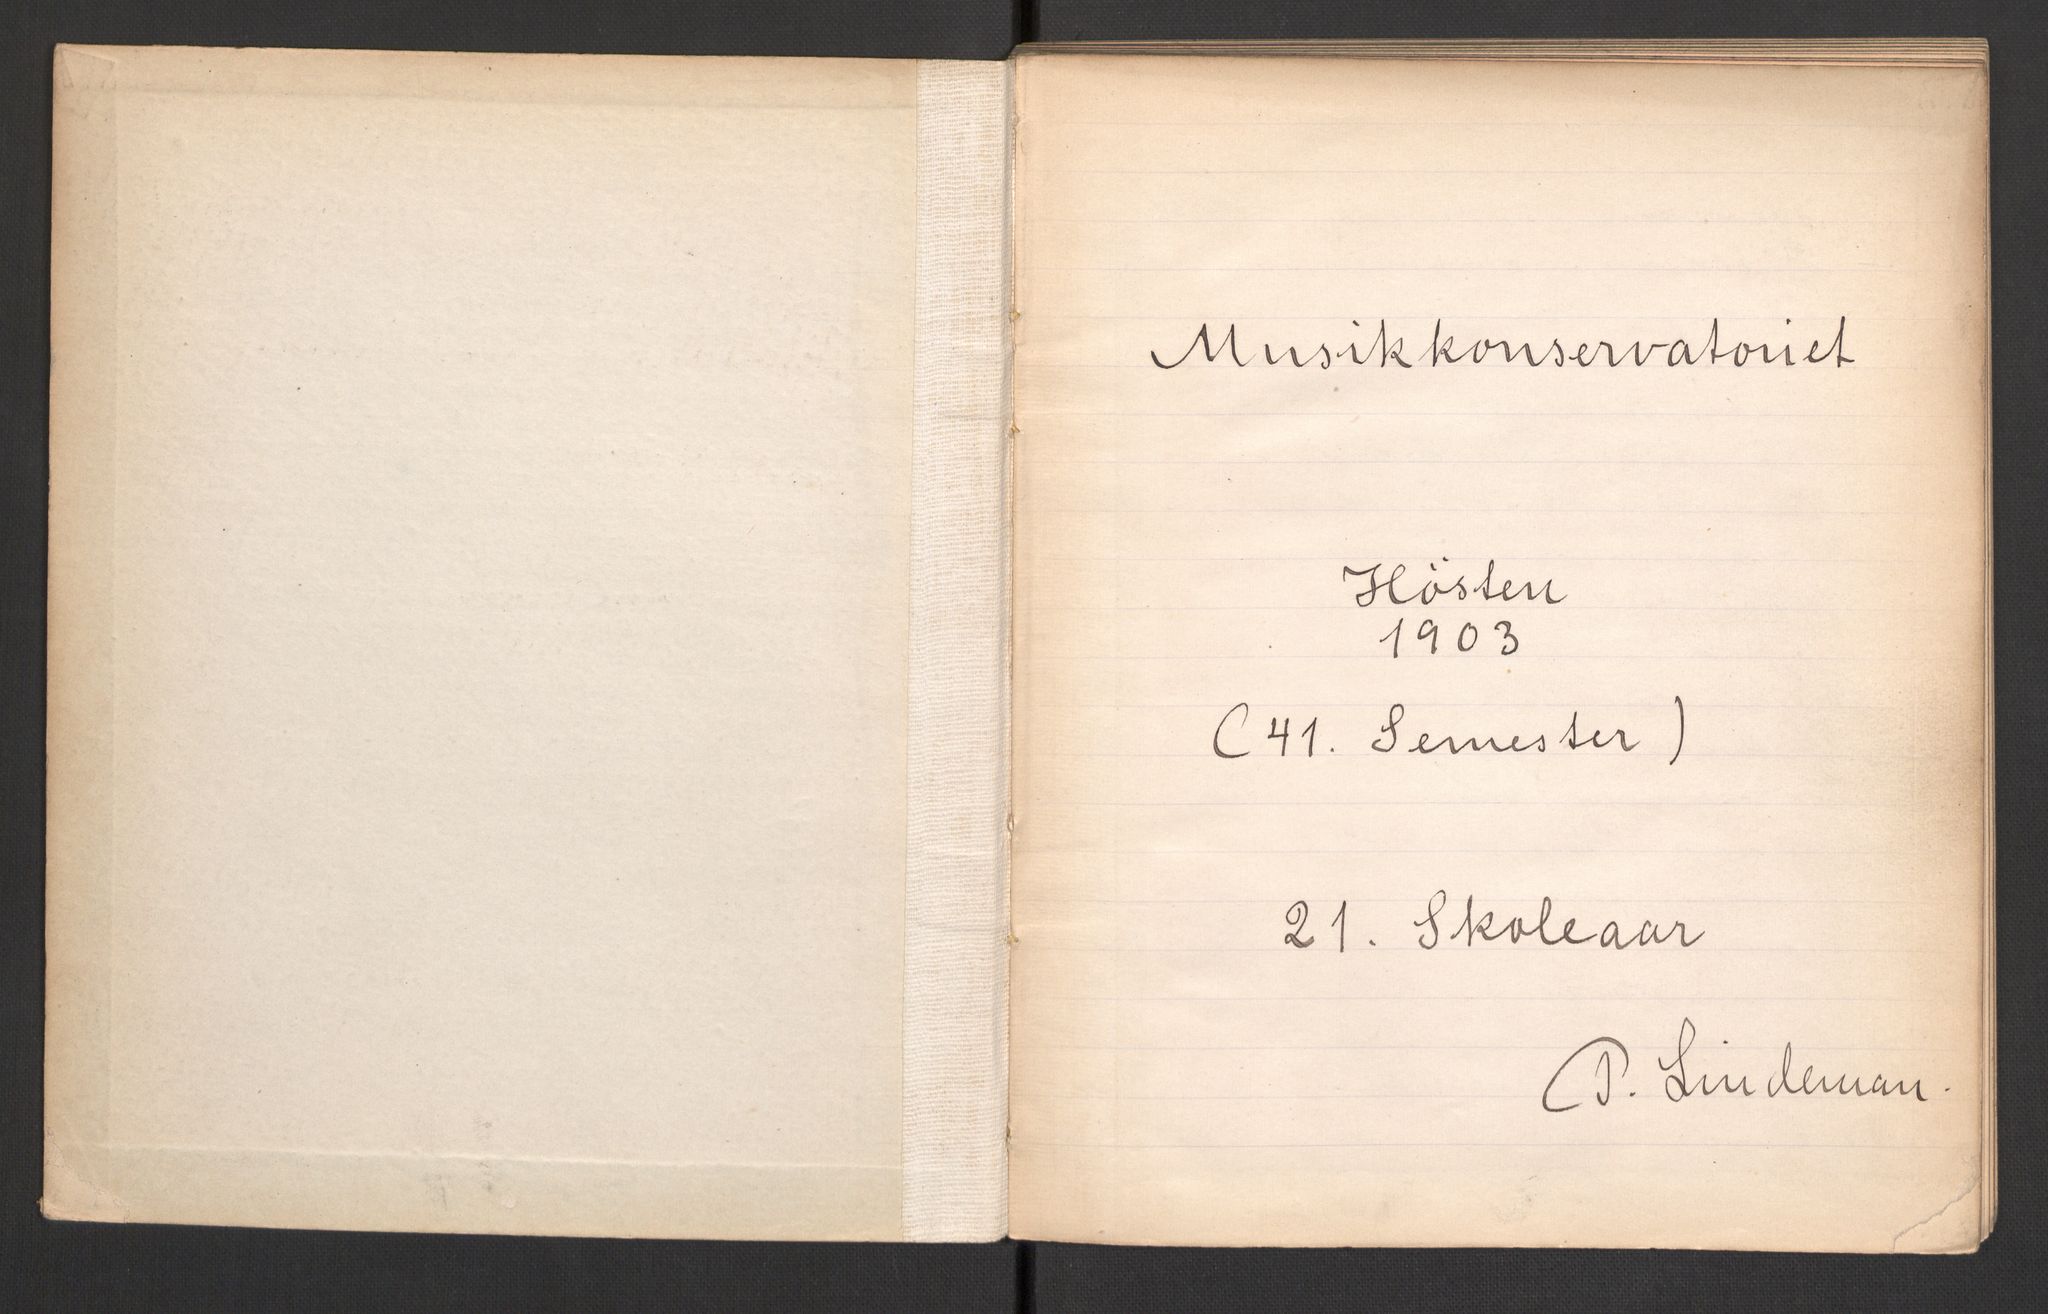 Musikkonservatoriet
Hösten
1903
(41. Semester)
21. Skoleaar
P. Lindeman.